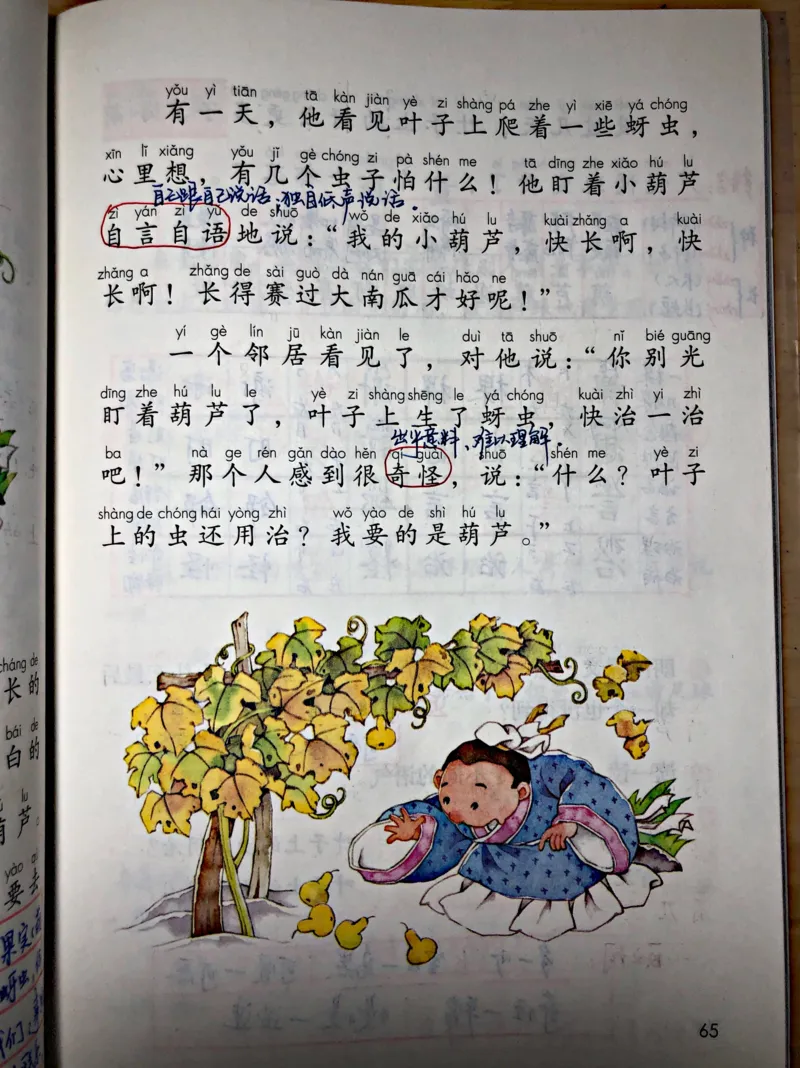 yǒu yì tiān tā kàn jiàn yè zi shàng pá zhe yì xiē yá chóng
有一天，他看见叶子上爬着一些蚜虫，
xīn lǐ xiǎng yǒu jǐ gè chóng zi pà shén me tā dīng zhe xiǎo hú lu
心里想，有几个虫子怕什么！他盯着小葫芦
自己跟自己说话；独自低声说话．
zì yán zì yǔ de shuō wǒ de xiǎo hú lu kuài zhǎng a kuài
自言自语地说：“我的小葫芦，快长啊，快
zhǎng a zhǎng de sài guò dà nán guā cái hǎo ne
长啊！长得赛过大南瓜才好呢！”
yí gè lín jū kàn jiàn le duì tā shuō nǐ bié guāng
一个邻居看见了，对他说：“你别光
dīng zhe hú lu le yè zi shàng shēng le yá chóng kuài zhì yi zhì
盯着葫芦了，叶子上生了蚜虫，快治一治
出乎意料、难以理解．
ba nà ge rén gǎn dào hěn qí guài shuō shén me yè zi
吧！”那个人感到很奇怪，说：“什么？叶子
shàng de chóng hái yòng zhì wǒ yào de shì hú lu
上的虫还用治？我要的是葫芦。”
cháng de
长的
bái de
白的
lu
芦。
yào
要去
果实
蚜虫
们
65